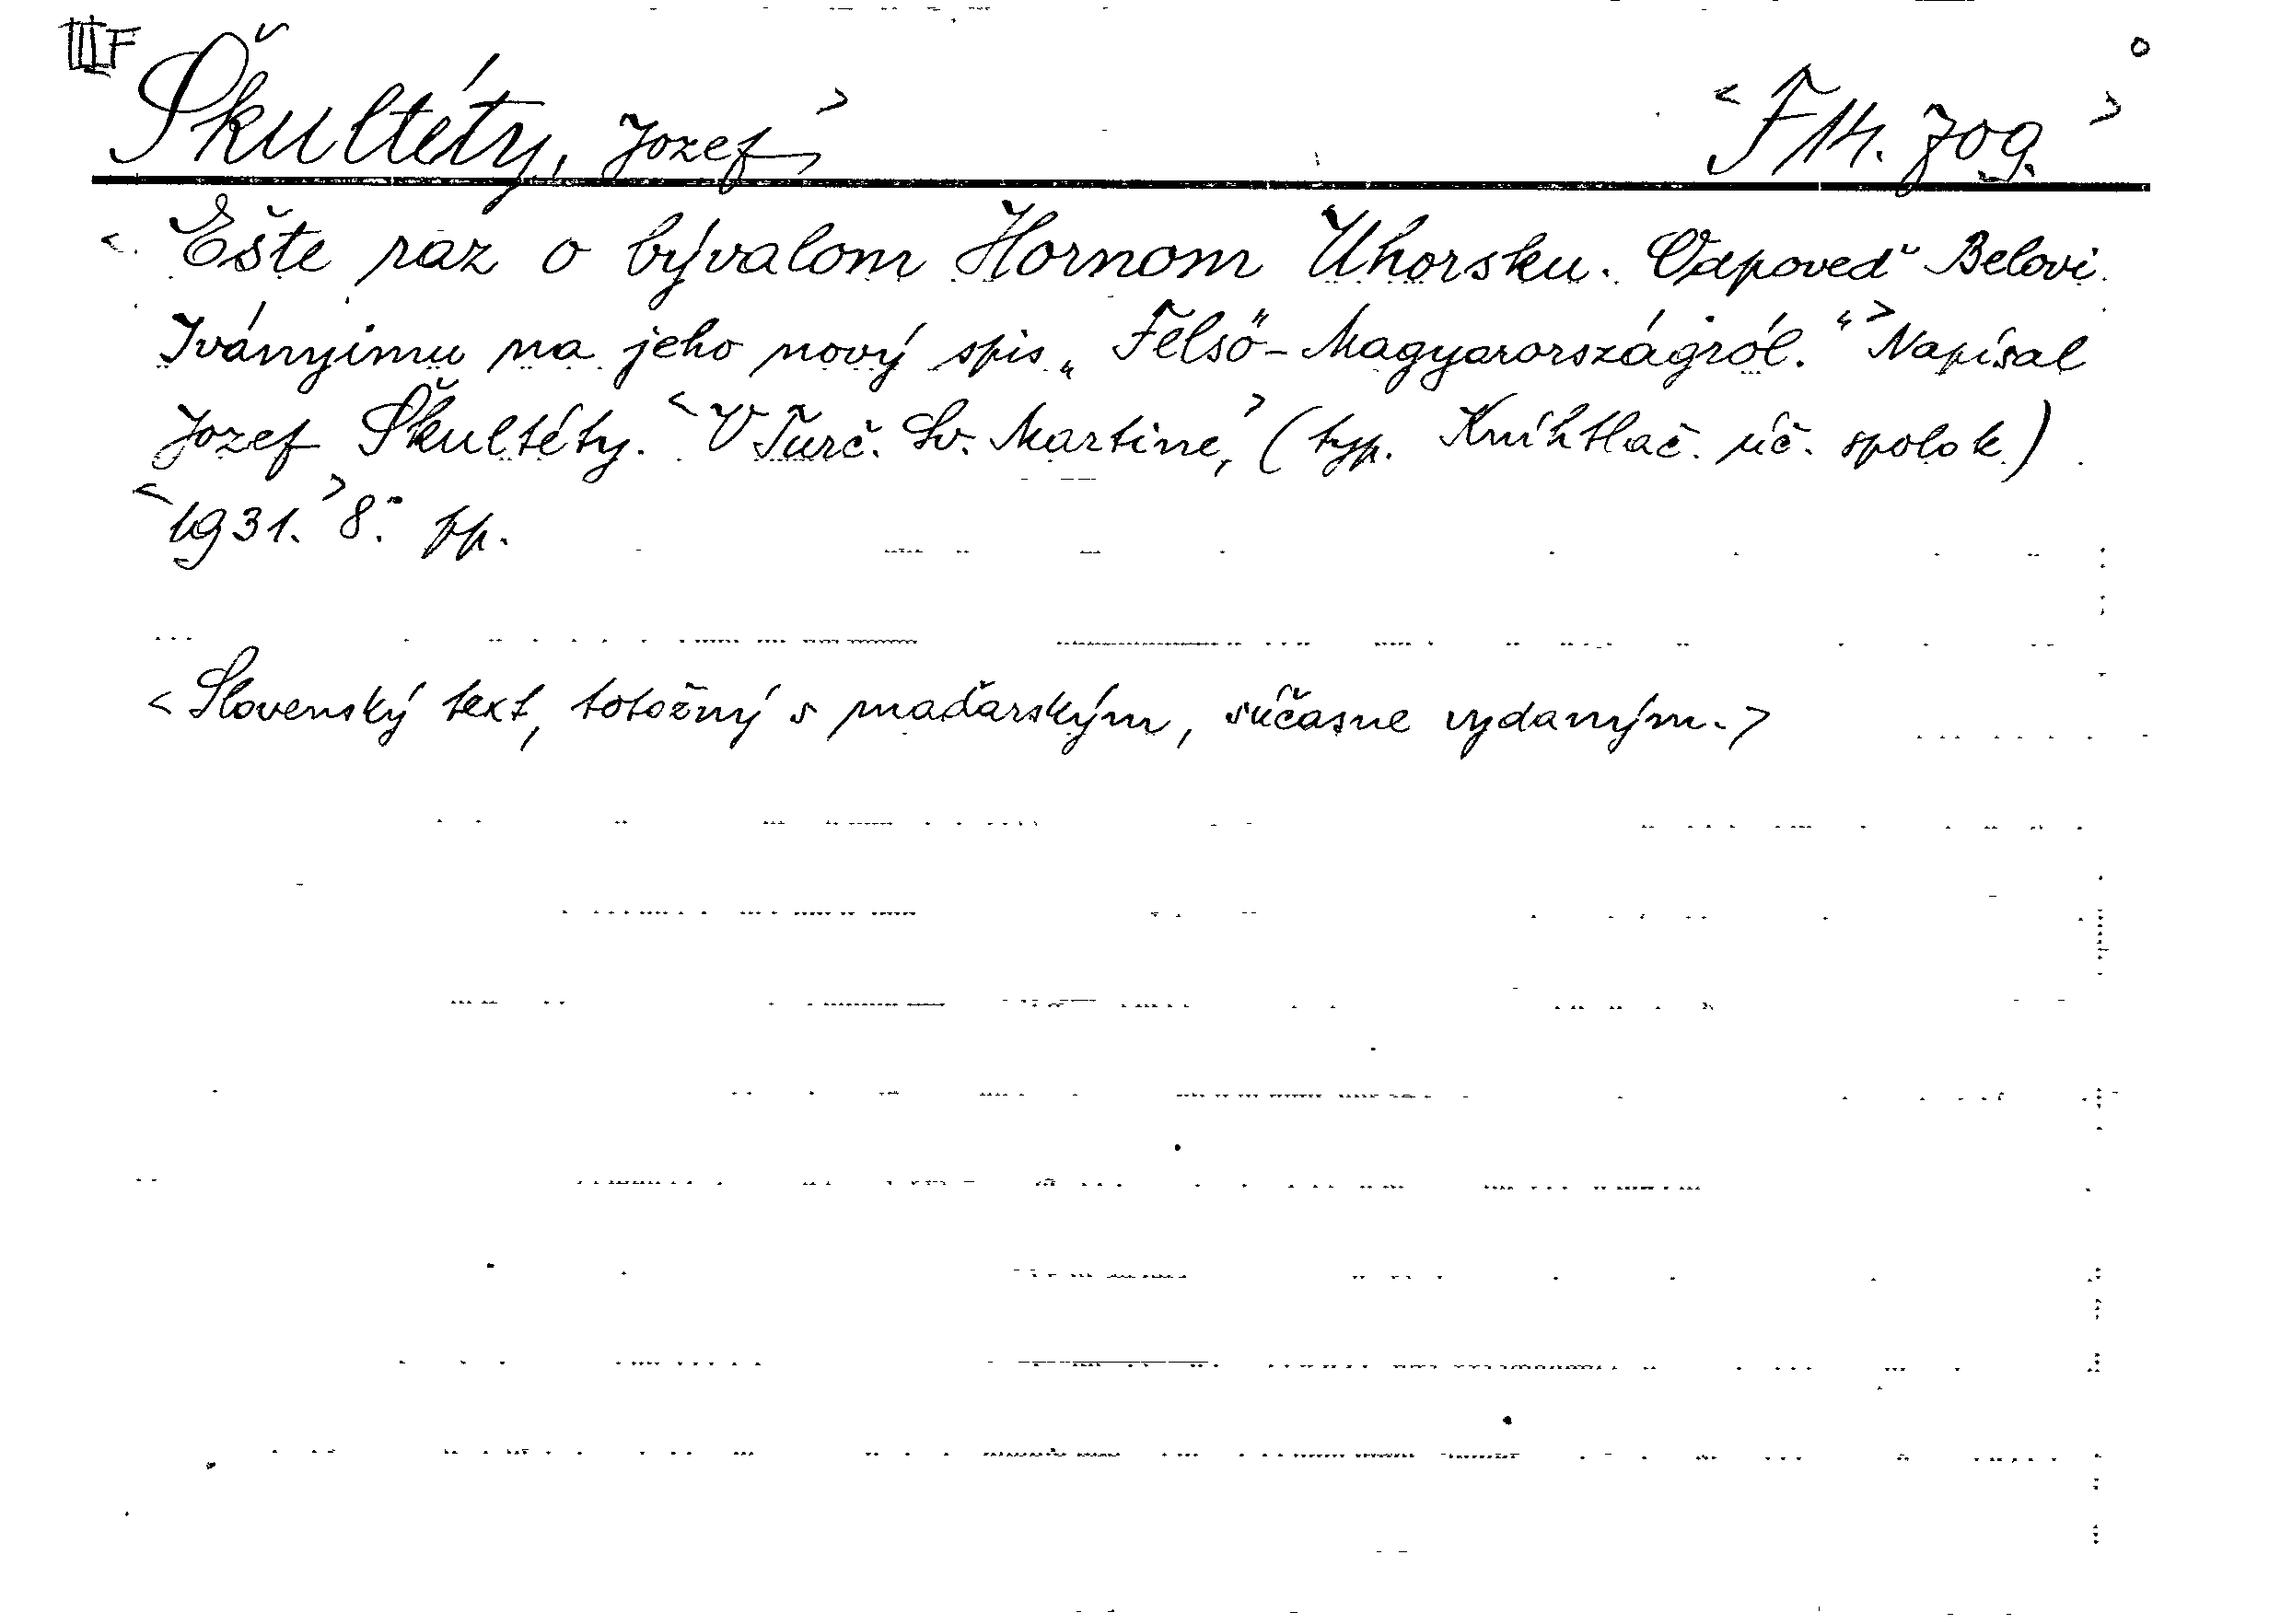 III F
Škultéty, Jozef > < F 14.709. >
< Ešte raz o bývalom Hornom Uhorsku. Odpoveď Belovi
Iványimu na jeho nový spis „Felső-Magyarországról.“ > Napísal
Jozef Škultéty. < V Turč. Sv. Martine, > (typ. Kníhtlač. úč. spolok)
< 1931. > 8.° pp.
< Slovenský text, totožný s maďarským, súčasne vydaným. >